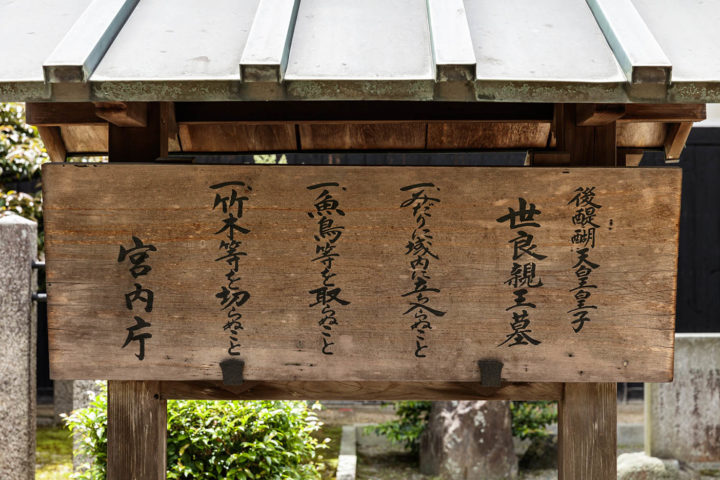 後醍醐天皇皇子
世良親王墓
一、みだりに域内に立ち入らぬこと
一、魚鳥等を取らぬこと
一、竹木等を切らぬこと
宮内庁